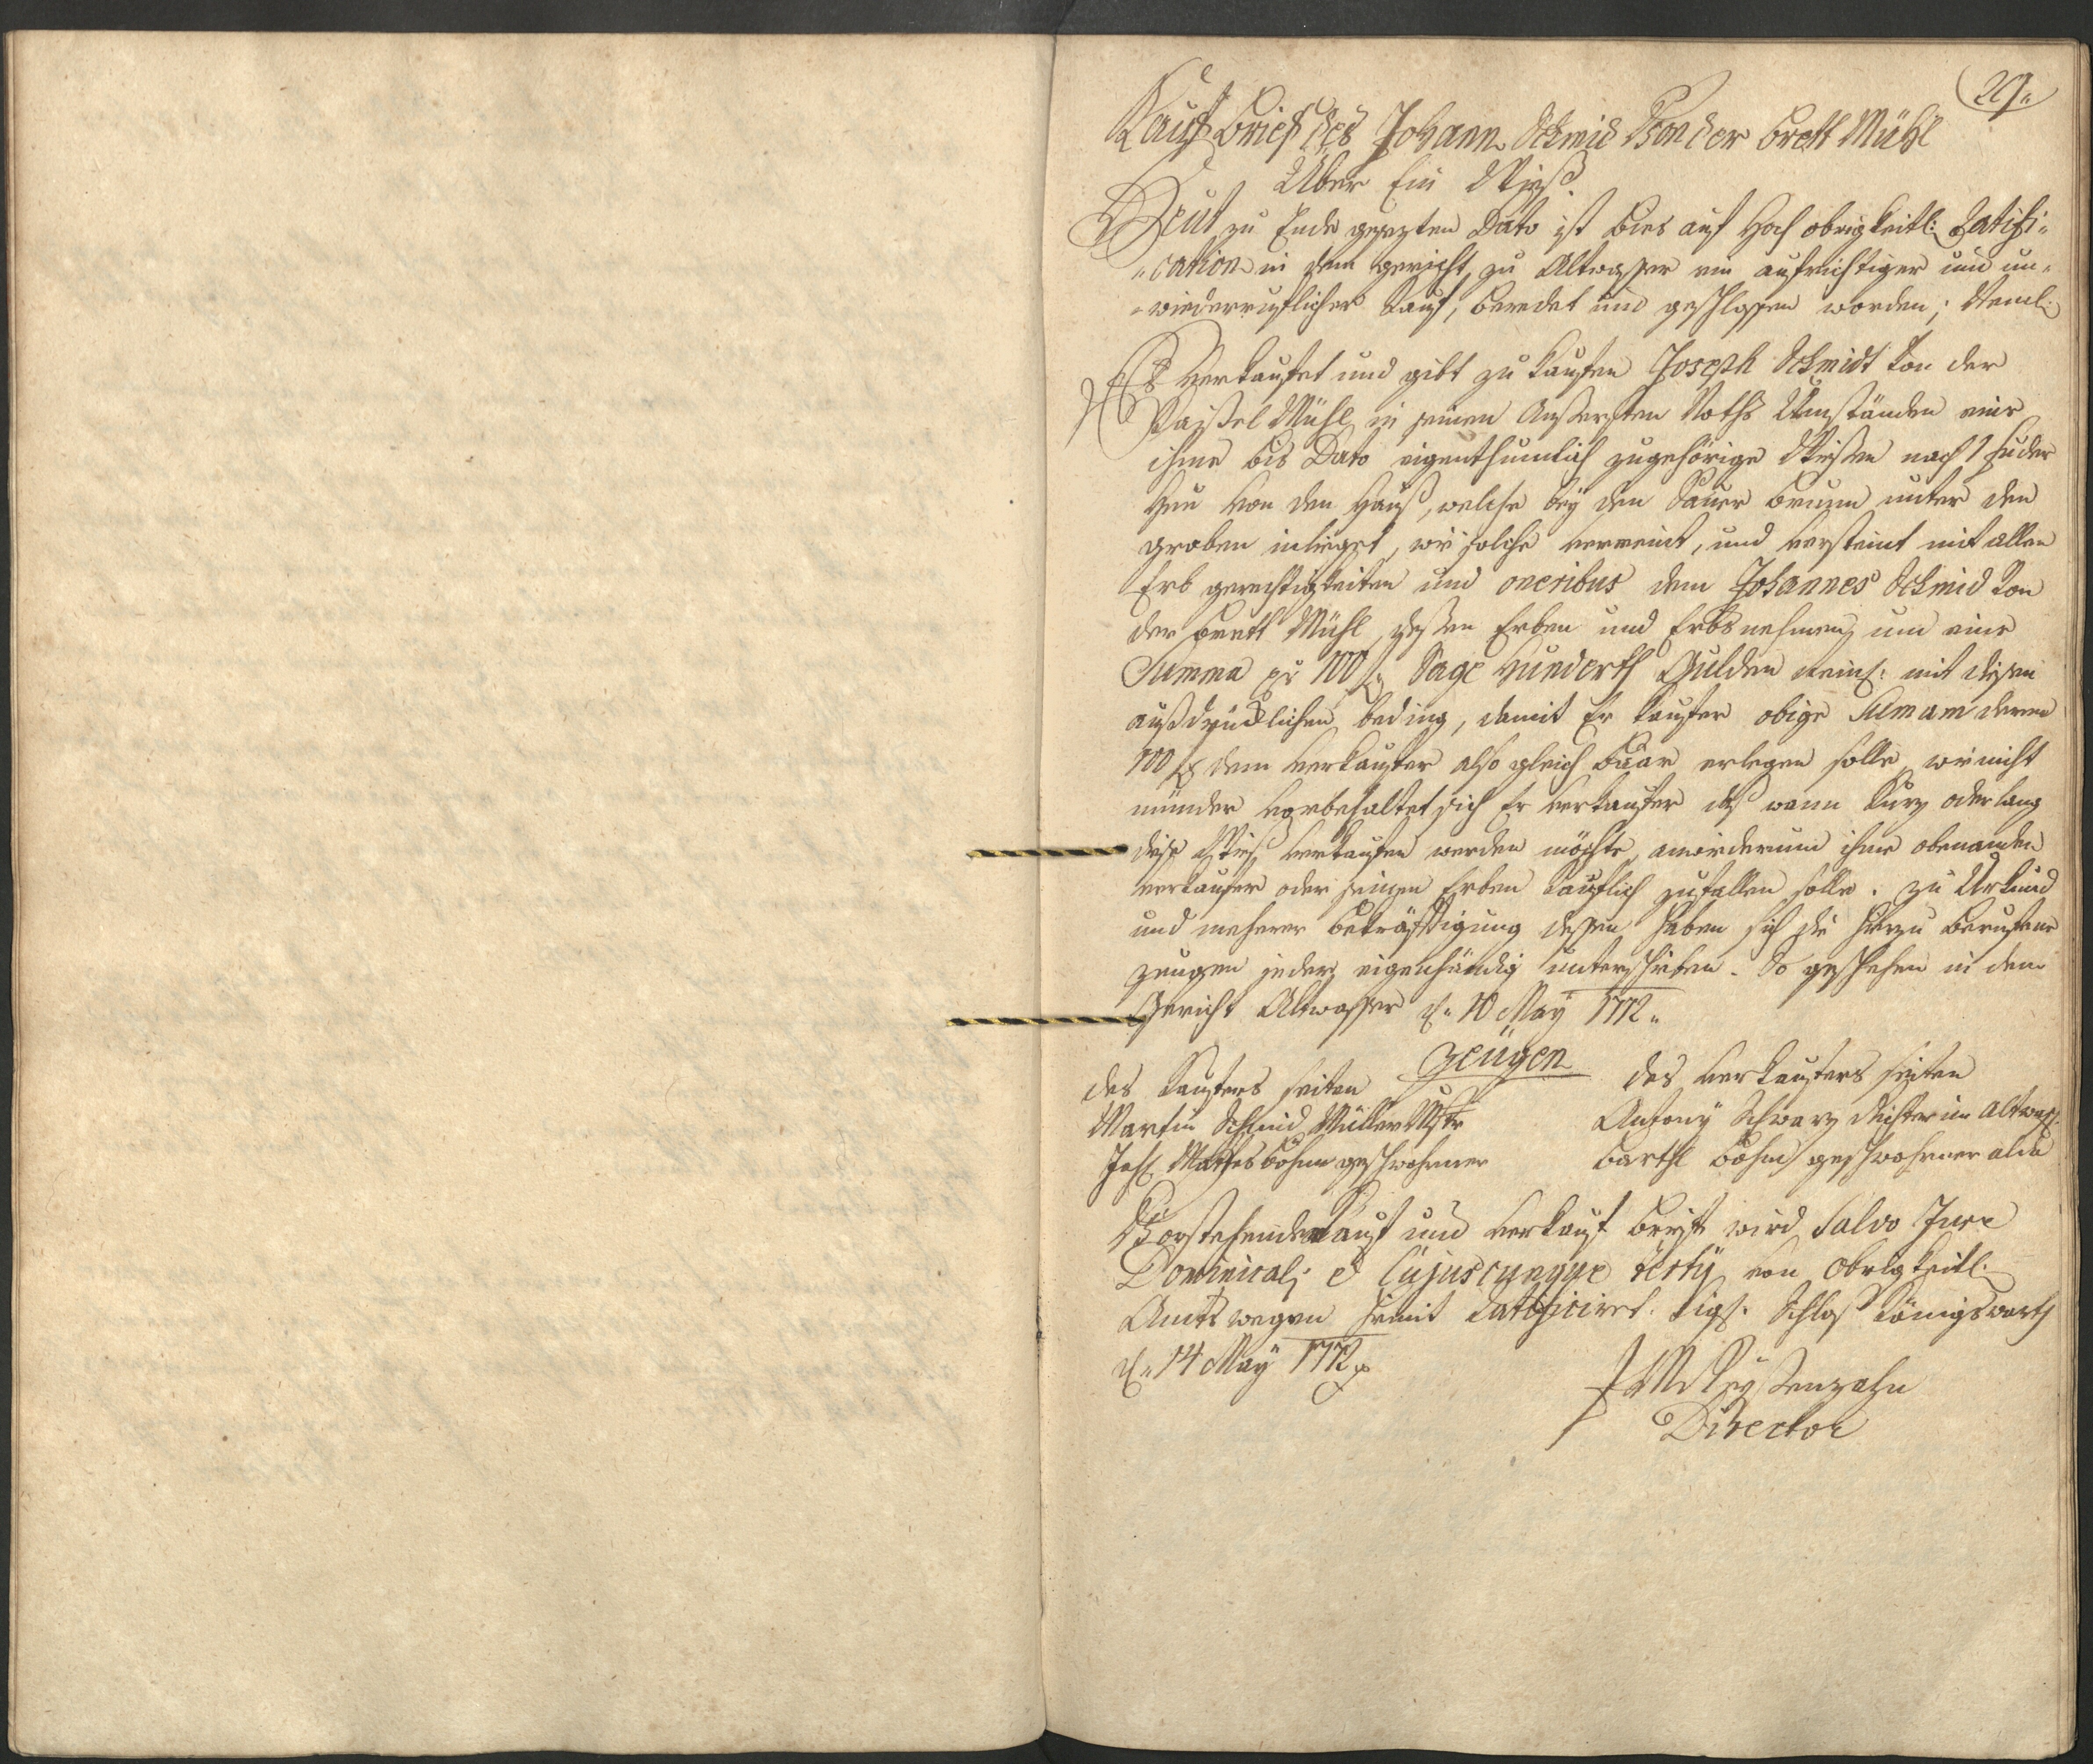 29.
Kauf Brief des Johann Schmid Von der Brett Mühl
Über Ein Wieß.
Heut zu Ende gesezten Dato ist bies auf Hoch obrigkeitl: Ratifi-
-cation in dem gericht zu Altwasser ein aufrichtiger und un-
-wiederruflicher Kauf, beredet und geschlossen worden; Neml:
Es Verkaufet und gibt zu Kaufen Joseph Schmidt Von der
Mühl in seinen Aussersten Noths Umständen eine
ihme bis Dato eigenthumlich zugehörige Wiessen nach 1 fuder
Heu Von den Hauß, welche beÿ den Sauer Brunn unter den
groben inlieget, wie solche verreint, und versteint mit allen
Erb gerechtigkeiten und oneribus dem Johannes Schmid Von
der Brett Mühl, dessen Erben und Erbsnehmen, um eine
Summa pr 100 f Sage Hunderth Gulden Reinl: mit diesen
außdrücklichen beding, damit Er Kaufer obige Sumam deren
100 f dem Verkaufer also gleich Baar erlegen solle, wie nicht
münder Vorbehaltet sich Er Verkaufer das wann Kurz oder lang
diese Wieß Verkaufen werden möchte, anwiederum ihme obenanden
Verkaufer oder seinen Erben Kauflich zufallen solle. Zu Urkund
und mehrer bekräfftigung dessen haben sich die hierzu Berufene
zeugen jeder eigenhändig unterschrieben. So geschehen in dem
Gericht Altwasser d. 10 Maÿ 1772.
Zeügen
des Kaufers seiten
des Verkaufers seiten
Martin Schmid Müller Mstr
Antonÿ Schwarz Richter in Altwass.
Joh. Mathes Böhm geschwohrner
Barthl Böhm geschwohrner alda
Vorstehender Kauf und Verkauf Brieff wird Salvo Jure
Dominicali et Cujuscunque tertÿ von Obrigkeitl:
Amts wegen hiemit Ratificiret. Sigl. Schloß Königswarth
d. 14 Maÿ 1772
Director